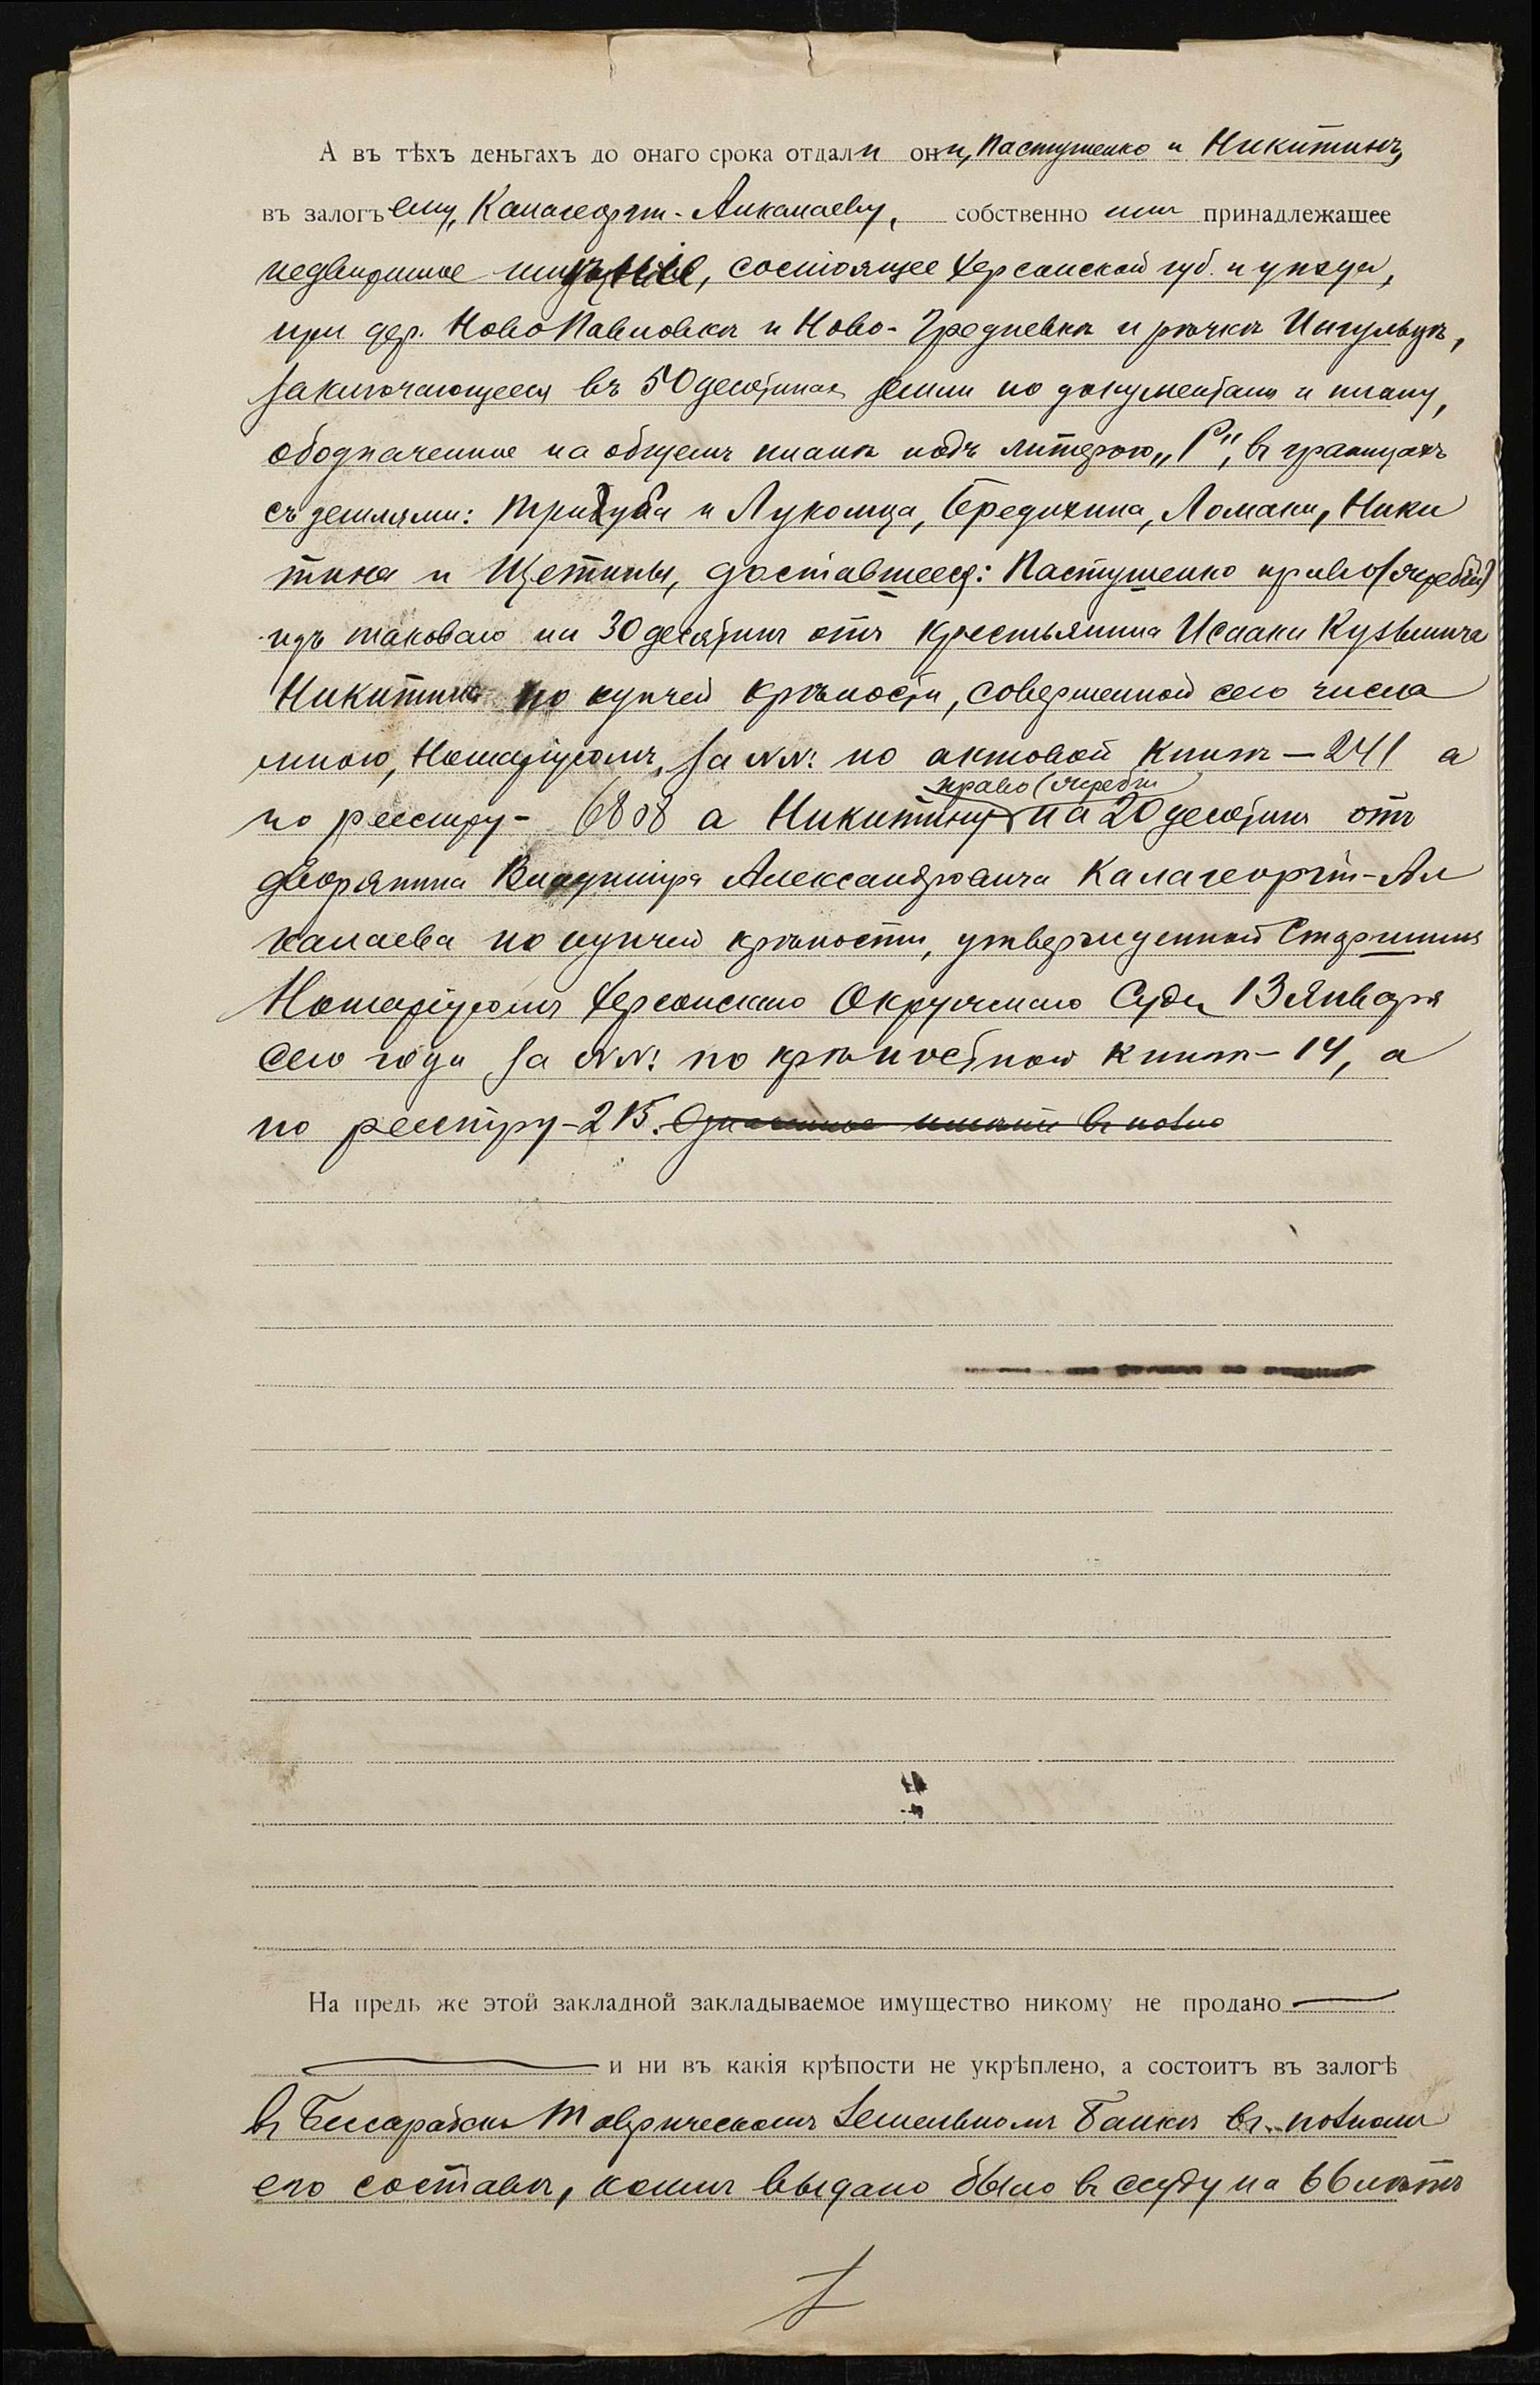 А въ тѣхъ деньгахъ до онаго срока отдали они, Пастушенко и Никитинъ,
въ залогъ ему, Калагеорги-Алкалаеву, собственно имъ принадлежащее
недвижимое имѣніе, состоящее Херсонской губ. и уѣзда,
при дер. НовоПавловкѣ и Ново-Гредневкѣ и рѣчкѣ Ингульцѣ,
заключающееся въ 50 десятинахъ земли по документамъ и плану,
обозначенное на общемъ планѣ подъ литерою „Г", въ границахъ
съ землями: Тризуба и Лукомца, Бередихина, Ломаки, Ники
тина и Щетины, доставшееся: Пастушенко право (жребій)
изъ таковаго на 30 десятинъ отъ крестьянина Исаака Кузьмича
Никитина по купчей крѣпости, совершенной сего числа
мною, Нотаріусомъ, за №№: по актовой книгѣ — 241 а
право (жребій
по реестру - 6808 а Никитину) на 20 десятинъ отъ
дворянина Владиміра Александровича Калагеоргій-Ал
калаева по купчей крѣпости, утвержденной Старшимъ
Нотаріусомъ Херсонскаго Окружнаго Суда 13 Января
сего года за №№: по крѣпостной книгѣ - 14, а
по реестру - 215. Означенное имѣніе въ полно
На предь же этой закладной закладываемое имущество никому не продано
и ни въ какія крѣпости не укрѣплено, а состоитъ въ залогѣ
въ Бессарабско Таврическомъ Земельномъ Банкѣ въ полномъ
его составѣ, коимъ выдано было въ ссуду на 66 лѣтъ